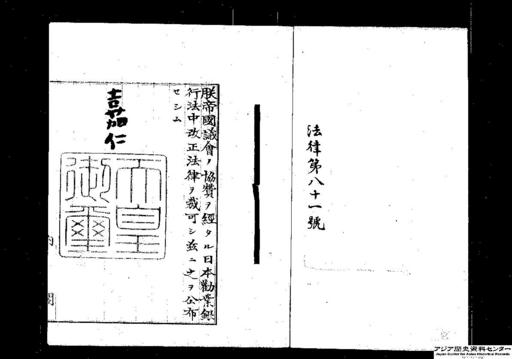 法律第八十一號
朕帝國議會ノ協賛ヲ經タル日本勸業銀
行法中改正法律ヲ裁可シ茲ニ之ヲ公布
セシム
嘉仁
天皇
御璽
内閣
アジア歴史資料センター
Japan Center for Asian Historical Records